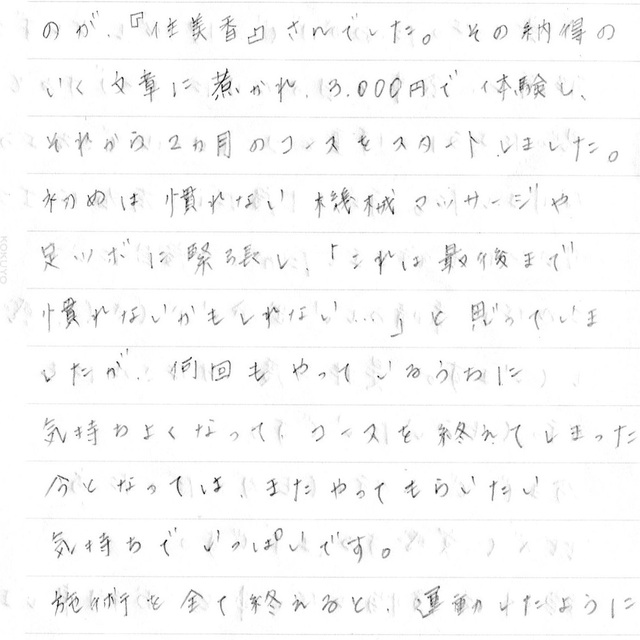 のが、『佳美香』さんでした。その納得の
いく文章に惹かれ、3.000円で体験し、
それから2カ月のコースをスタートしました。
初めは慣れない機械マッサージや
足ツボに緊張し、「これは最後まで
慣れないかもしれない…」と思っていま
したが、何回もやっているうちに
気持ちよくなって、コースを終えてしまった
今となっては、またやってもらいたい
気持ちでいっぱいです。
施術を全て終えると、運動したように
KOKUYO